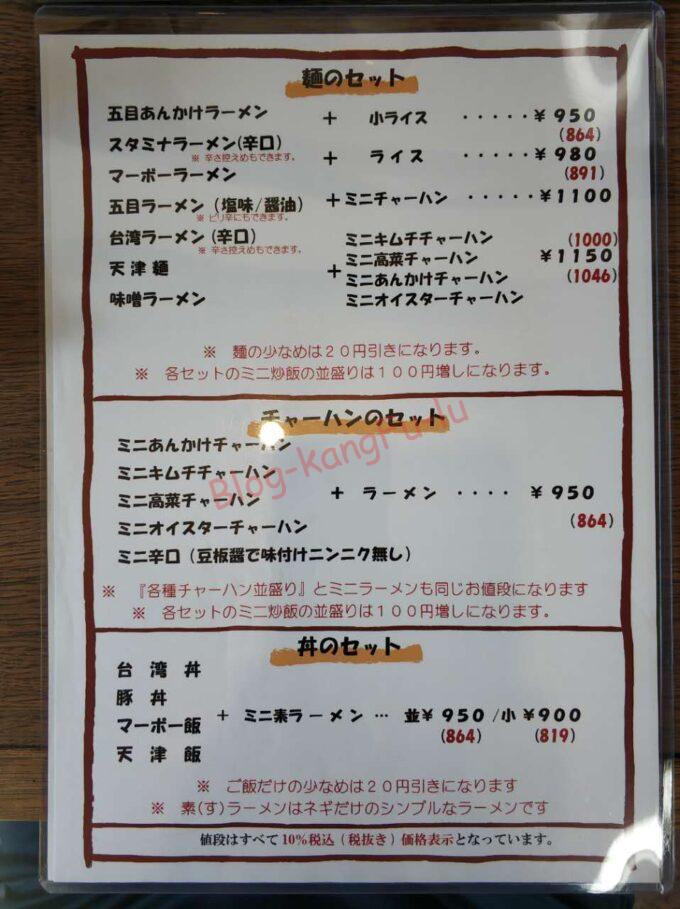 麺のセット
五目あんかけラーメン ＋ 小ライス ・・・・・￥950
(864)
スタミナラーメン(辛口) ＋ ライス ・・・・・￥980
※ 辛さ控えめもできます。
(891)
マーボーラーメン
五目ラーメン (塩味/醤油) ＋ミニチャーハン ・・・・・￥1100
※ ピリ辛にもできます。
(1000)
台湾ラーメン(辛口)
※ 辛さ控えめもできます。
天津麺
味噌ラーメン
＋
ミニキムチチャーハン
ミニ高菜チャーハン ￥1150
ミニあんかけチャーハン (1046)
ミニオイスターチャーハン
※ 麺の少なめは２０円引きになります。
※ 各セットのミニ炒飯の並盛りは１００円増しになります。
チャーハンのセット
ミニあんかけチャーハン
ミニキムチチャーハン
ミニ高菜チャーハン ＋ ラーメン ・・・・ ￥950
ミニオイスターチャーハン (864)
ミニ辛口 (豆板醤で味付けニンニク無し)
※ 『各種チャーハン並盛り』とミニラーメンも同じお値段になります
※ 各セットのミニ炒飯の並盛りは１００円増しになります。
丼のセット
台湾丼
豚丼
マーボー飯 ＋ ミニ素ラーメン … 並￥950 /小￥900
(864) (819)
天津飯
※ ご飯だけの少なめは２０円引きになります
※ 素(す)ラーメンはネギだけのシンプルなラーメンです
値段はすべて10%税込（税抜き）価格表示となっています。
Blog-kangfu-lu